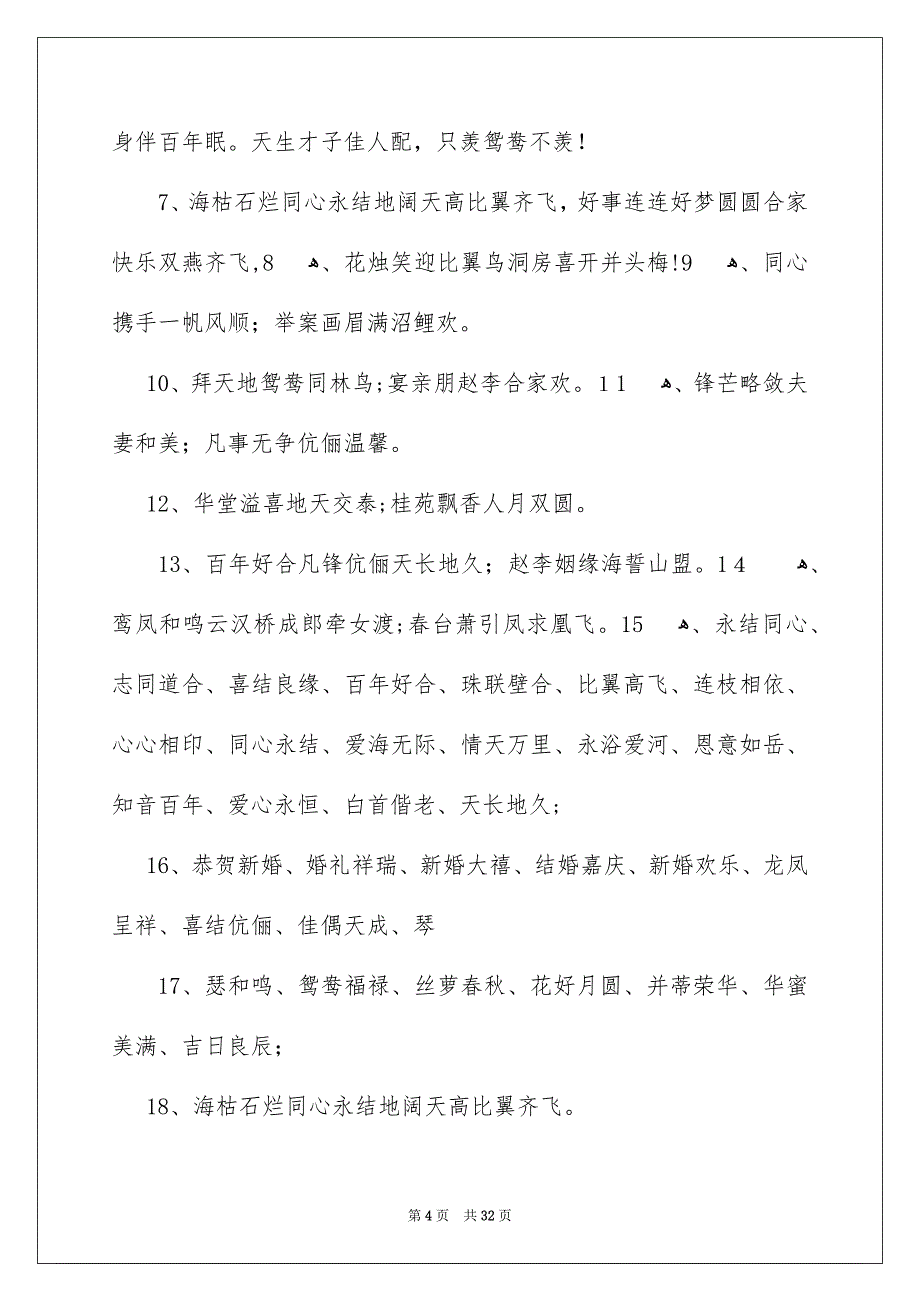 身伴百年眠。天生才子佳人配，只羡鸳鸯不羡！
7、海枯石烂同心永结地阔天高比翼齐飞，好事连连好梦圆圆合家
快乐双燕齐飞,8 ﻫ、花烛笑迎比翼鸟洞房喜开并头梅!9 ﻫ、同心
携手一帆风顺；举案画眉满沼鲤欢。
10、拜天地鸳鸯同林鸟;宴亲朋赵李合家欢。11 ﻫ、锋芒略敛夫
妻和美；凡事无争伉俪温馨。
12、华堂溢喜地天交泰;桂苑飘香人月双圆。
13、百年好合凡锋伉俪天长地久；赵李姻缘海誓山盟。14 ﻫ、
鸾凤和鸣云汉桥成郎牵女渡;春台萧引凤求凰飞。15 ﻫ、永结同心、
志同道合、喜结良缘、百年好合、珠联壁合、比翼高飞、连枝相依、
心心相印、同心永结、爱海无际、情天万里、永浴爱河、恩意如岳、
知音百年、爱心永恒、白首偕老、天长地久;
16、恭贺新婚、婚礼祥瑞、新婚大禧、结婚嘉庆、新婚欢乐、龙凤
呈祥、喜结伉俪、佳偶天成、琴
17、瑟和鸣、鸳鸯福禄、丝萝春秋、花好月圆、并蒂荣华、华蜜
美满、吉日良辰；
18、海枯石烂同心永结地阔天高比翼齐飞。
第4页 共32页